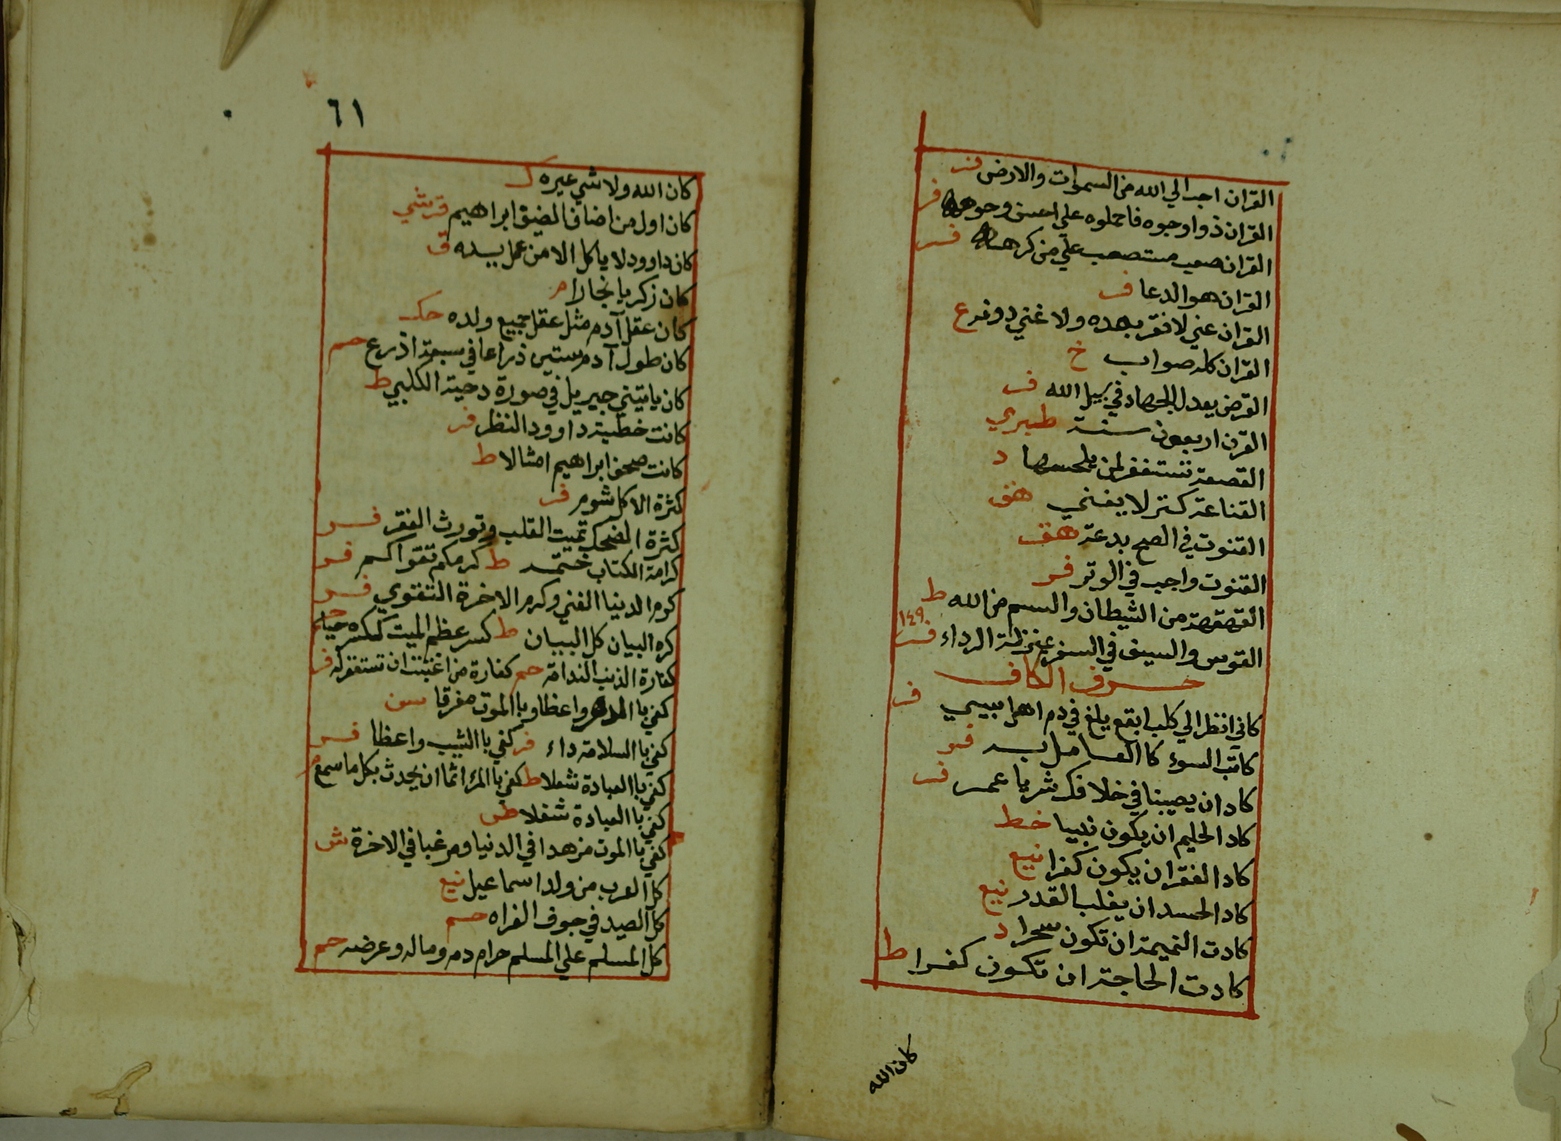 القران احب الي الله من السموات والارض فر
القران ذوا وجوه فاحملوه علي احسن وجوهه فر
القران صعب مستصعب علي من كرهه فر
القران هو الدعا ف
القران غني لا فقر بعده ولا غني دونه ع
القران كله صواب خ
القرض يعدل الجهاد في سبيل الله ف
القرن اربعون سنة طبري
القصعة تستغفر لمن يلحسها د
القناعة كنز لا يفني هق
القنوت في الصبح بدعة هق
القنوت واجب في الوتر فر
القهقهة من الشيطان والتبسم من الله ط
القوس والسيف في السفر بمنزلة الرداء فر
١٤٩
حرف الكاف
كاني انظر الي كلب ابقع يلغ في دم اهل بيتي ف
كاتب السوء كا العامل به فر
كاد ان يصيبنا في خلافك شر يا عمر ف
كاد الحليم ان يكون نبيا خط
كاد الفقر ان يكون كفرا نيع
كاد الحسد ان يغلب القدر نيع
كادت النميمة ان تكون سحرا د
كادت الحاجة ان تكون كفرا ط
كان الله
٦١
كان الله ولا شي غيره ك
كان اول من اضاف الضيف ابراهيم قرشي
كان داوود لا ياكل الا من عمل يده ق
كان زكريا نجارا م
كان عقل آدم مثل عقل جميع ولده حك
كان طول آدم ستين ذراعا في سبعة اذرع حم
كان ياتيني جبريل في صورة دحية الكلبي ط
كانت خطيئة داوود النظر فر
كانت صحف ابراهيم امثالا ط
كثرة الاكل شوم فر
كثرة الضحك تميت القلب وتورث الفقر فر
كرامة الكتاب ختمه ط كرمكم تقواكم فر
كرم الدنيا الغني وكرم الاخرة التقوي فر
كره البيان كل البيان ط كسر عظم الميت ككسره حيا م
كفارة الذنب الندامة حم كفارة من اغتبت ان تستغفر له فر
كفي با الدهر واعظا وبا الموت مفرقا سن
كفي با السلامة داء فر كفي با الشيب واعظا فر
كفي با العبادة شغلا ط كفي با المرء اثما ان يحدث بكل ما سمع م
كفي با العبادة شغلا ط
كفي با الموت مزهدا في الدنيا ومرغبا في الاخرة ش
كل العرب من ولد اسماعيل نيع
كل الصيد في جوف الفراه حم
كل المسلم علي المسلم حرام دمه وماله وعرضه حم